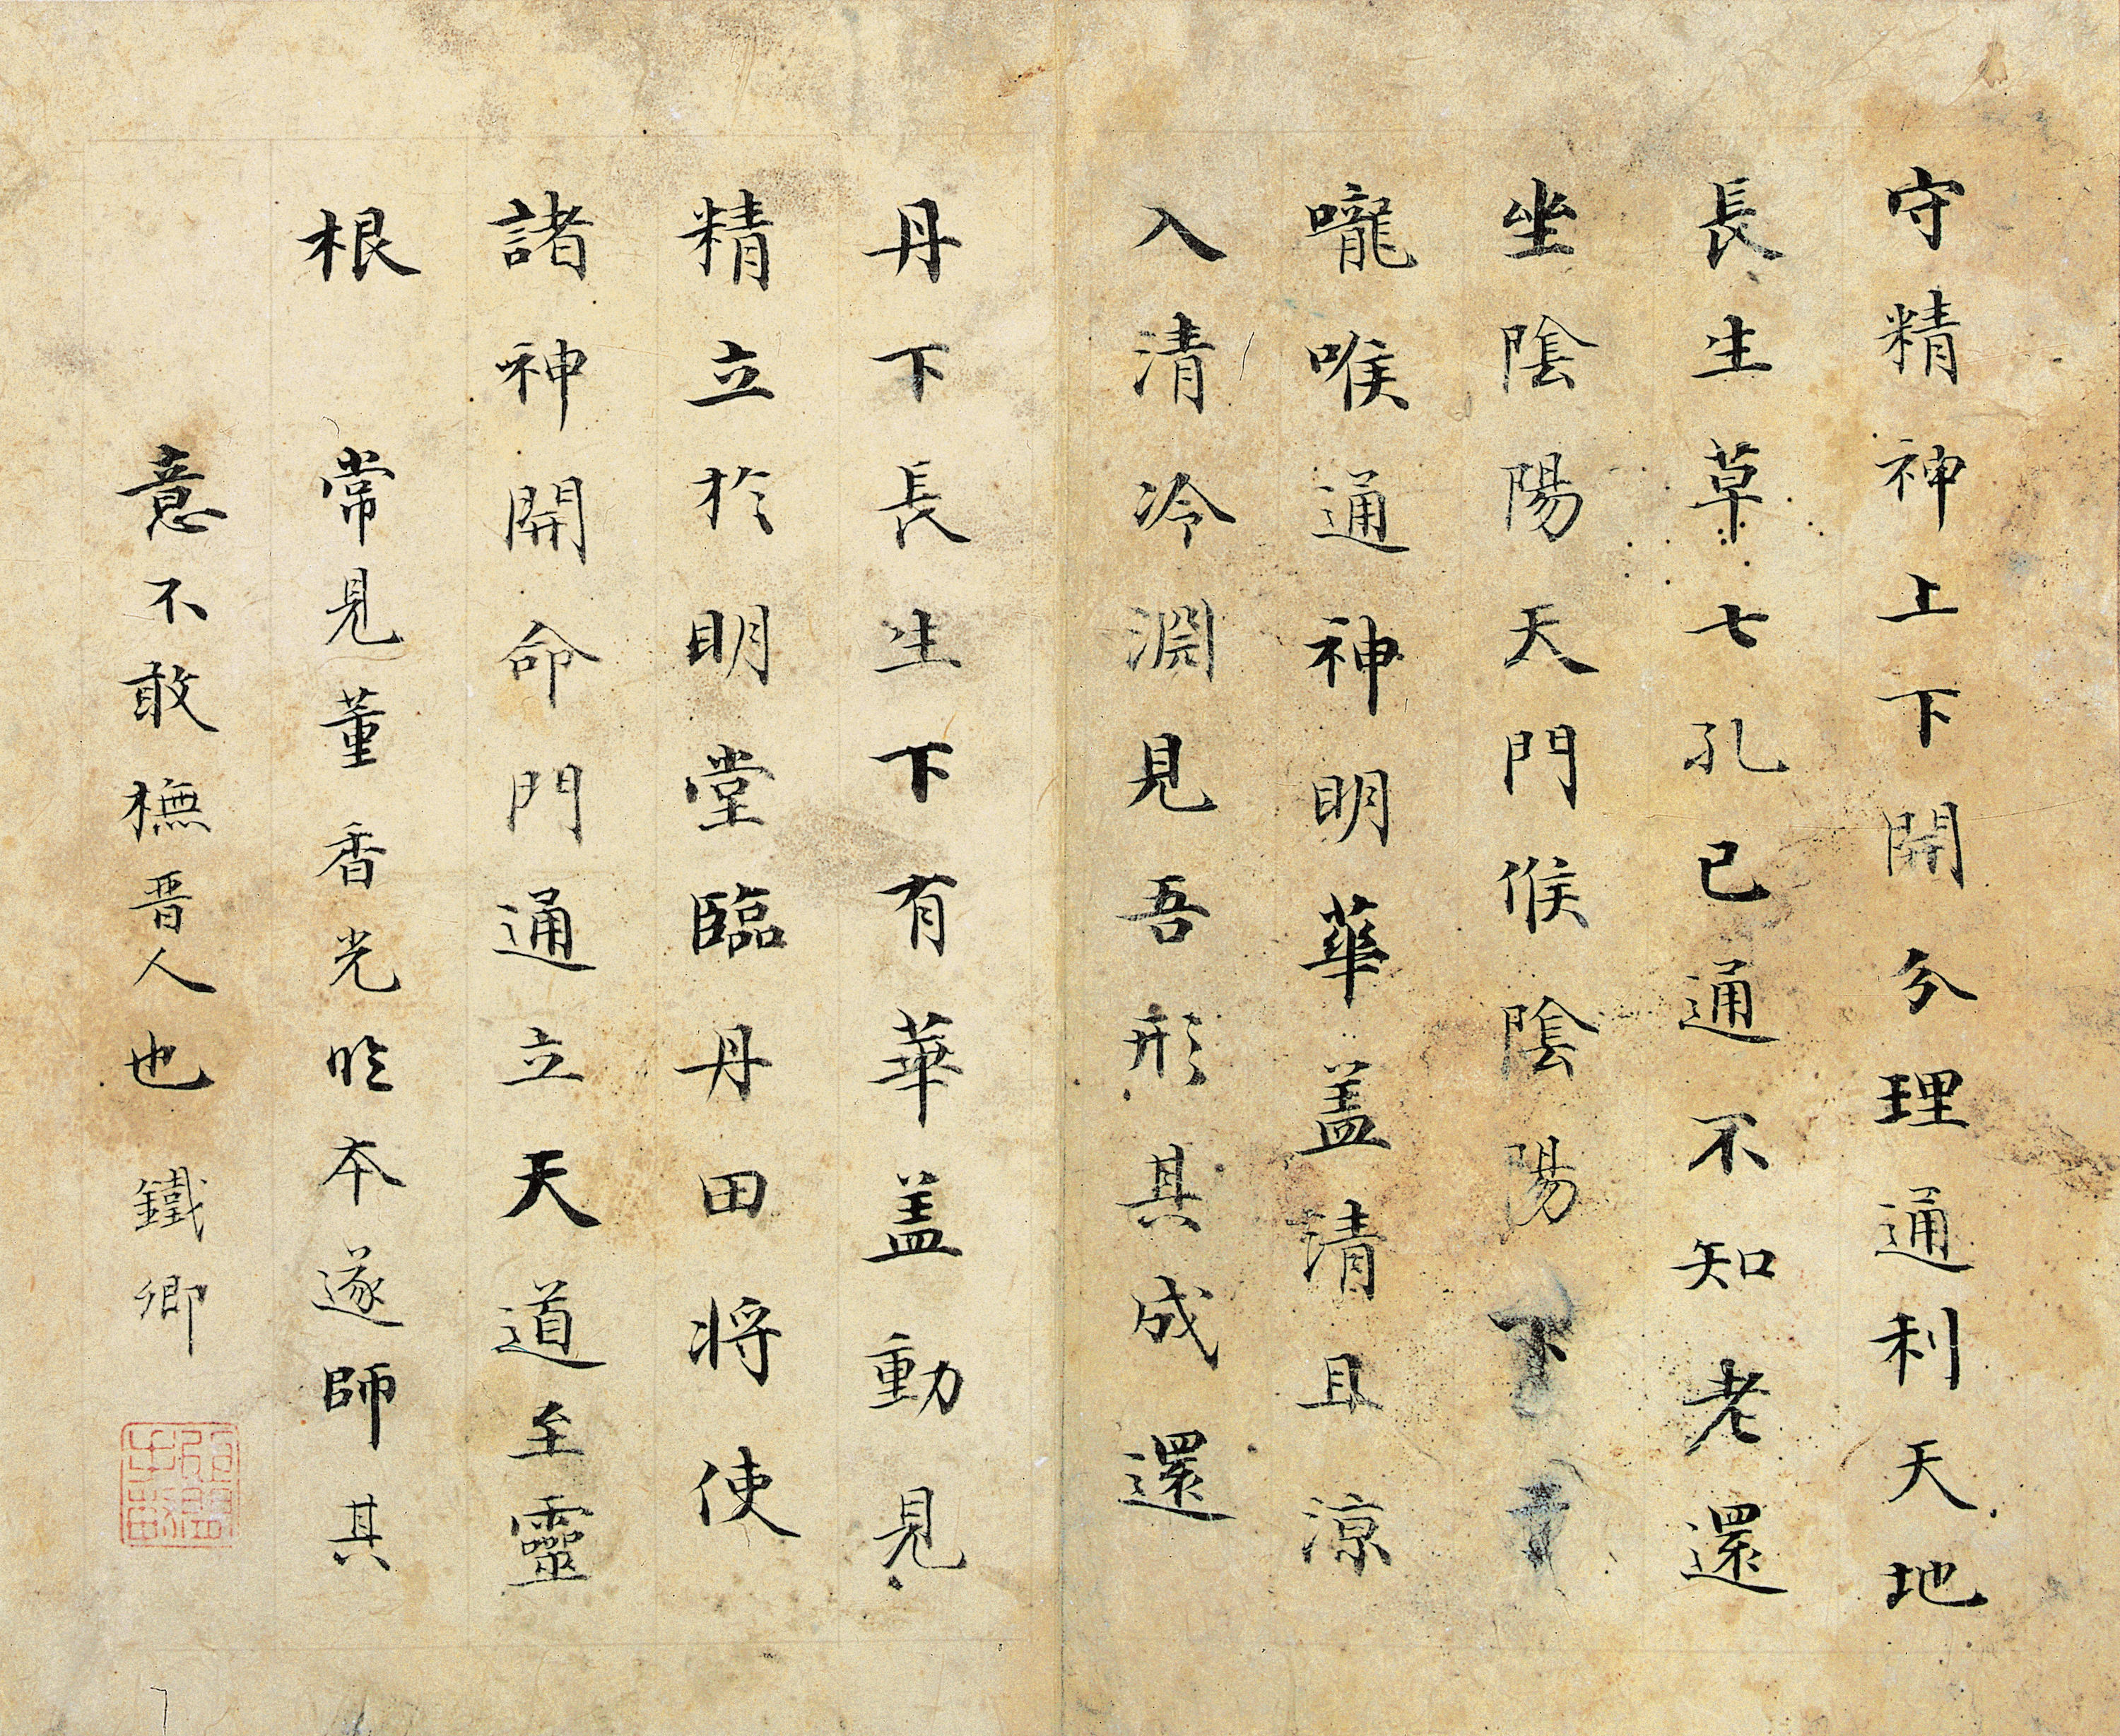 守精神上下開分理通利天地
長生草七孔已通不知老還
坐陰陽天門候陰陽下于
嚨喉通神明華蓋清且涼
入清冷淵見吾形其成還
丹下長生下有華蓋動見
精立於明堂臨丹田将使
諸神開命門通立天道至靈
根 常見董香光臨本遂師其
意不敢橅晋人也 鐵卿